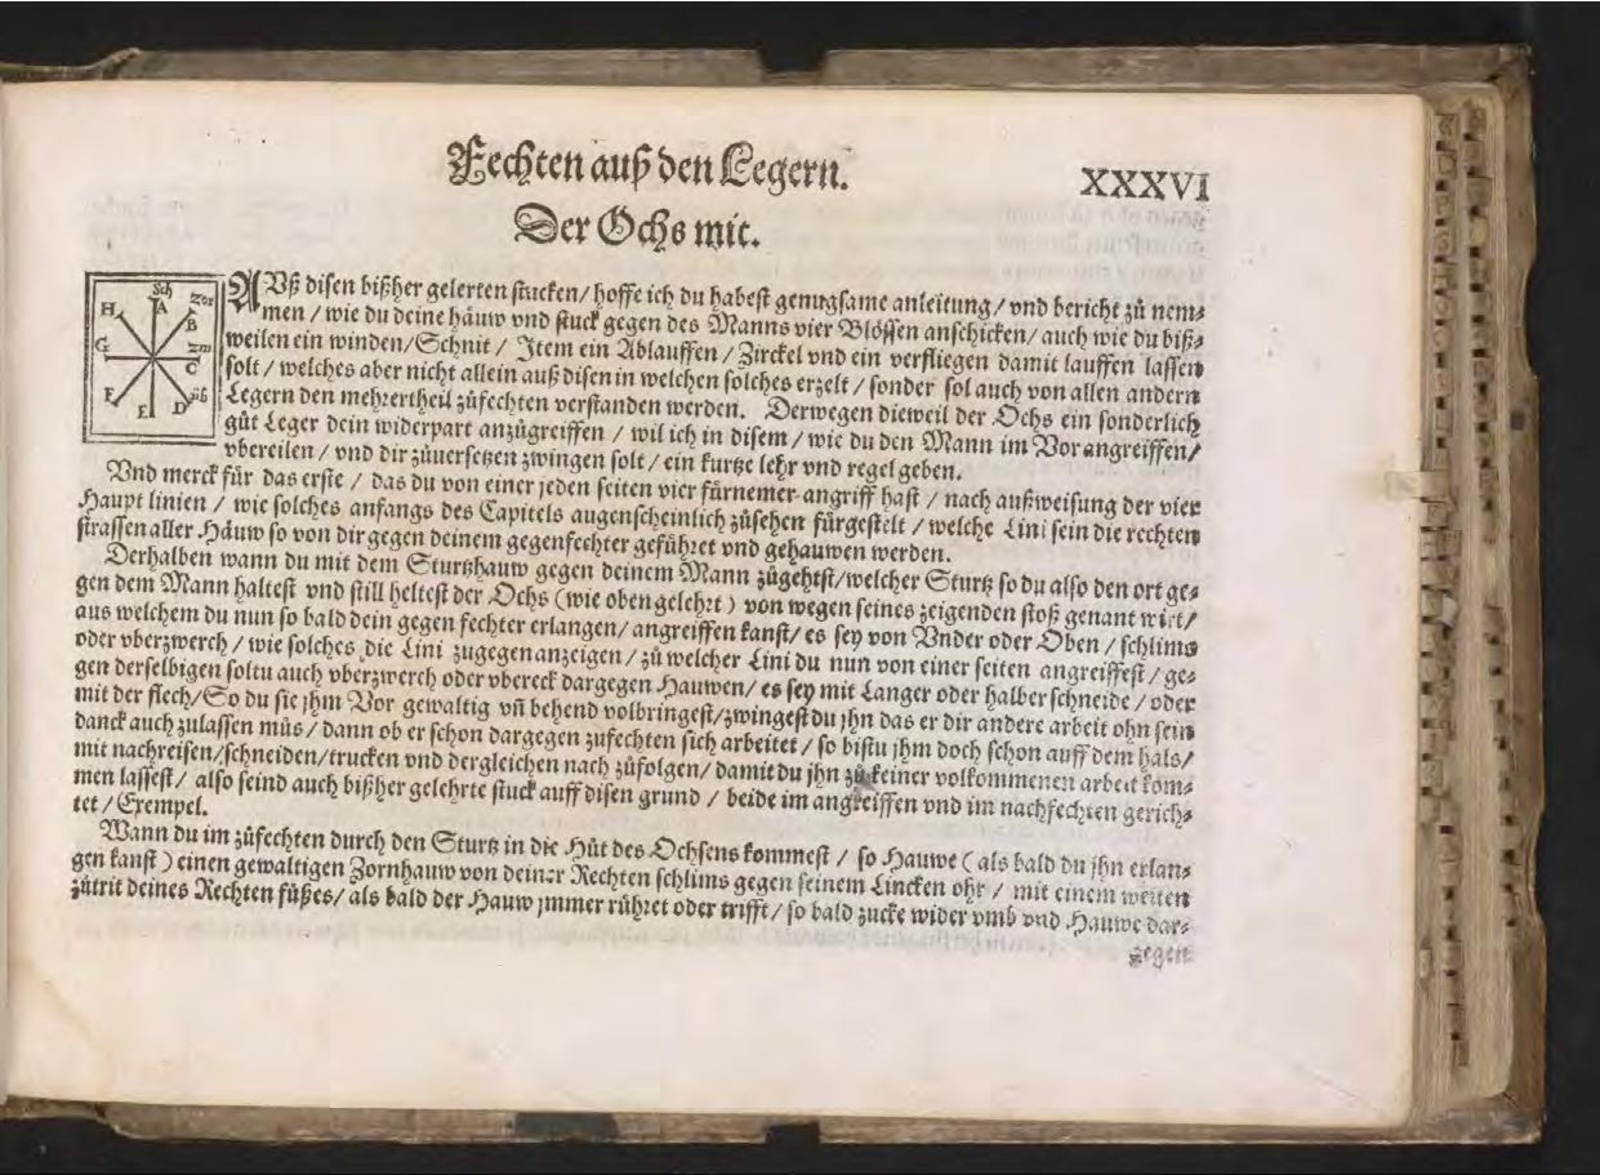 Fechten auß den Legern.
XXXVI
Der Ochs mit.
Sch
A
Zor
B
zm
C
üb
D
E
F
G
H
AVß disen bißher gelerten stucken / hoffe ich du habest genugsame anleitung / vnd bericht zů nem⸗
men / wie du deine häuw vnd stuck gegen des Manns vier Blössen anschicken / auch wie du biß⸗
weilen ein winden / Schnit / Item ein Ablauffen / Zirckel vnd ein verfliegen damit lauffen lassen
solt / welches aber nicht allein auß disen in welchen solches erzelt / sonder sol auch von allen andern
Legern den mehrertheil zůfechten verstanden werden. Derwegen dieweil der Ochs ein sonderlich
gůt Leger dein widerpart anzůgreiffen / wil ich in disem / wie du den Mann im Vor angreiffen /
vbereilen / vnd dir zůuersetzen zwingen solt / ein kurtze lehr vnd regel geben.
Vnd merck für das erste / das du von einer jeden seiten vier fürnemer angriff hast / nach außweisung der vier
Haupt linien / wie solches anfangs des Capitels augenscheinlich zůsehen fürgestelt / welche Lini sein die rechten
strassen aller Häuw so von dir gegen deinem gegenfechter geführet vnd gehauwen werden.
Derhalben wann du mit dem Sturtzhauw gegen deinem Mann zůgehtst / welcher Sturtz so du also den ort ge⸗
gen dem Mann haltest vnd still heltest der Ochs (wie oben gelehrt) von wegen seines zeigenden stoß genant wirt /
aus welchem du nun so bald dein gegen fechter erlangen / angreiffen kanst / es sey von Vnder oder Oben / schlims
oder vberzwerch / wie solches die Lini zugegen anzeigen / zů welcher Lini du nun von einer seiten angreiffest / ge⸗
gen derselbigen soltu auch vberzwerch oder vbereck dargegen Hauwen / es sey mit Langer oder halber schneide / oder
mit der flech / So du sie jhm Vor gewaltig vñ behend volbringest / zwingest du jhn das er dir andere arbeit ohn sein
danck auch zulassen můs / dann ob er schon dargegen zufechten sich arbeitet / so bistu jhm doch schon auff dem hals /
mit nachreisen / schneiden / trucken vnd dergleichen nach zůfolgen / damit du jhn zů keiner volkommenen arbeit kom⸗
men lassest / also seind auch bißher gelehrte stuck auff disen grund / beide im angreiffen vnd im nachfechten gerich⸗
tet / Exempel.
Wann du im zůfechten durch den Sturtz in die Hůt des Ochsens kommest / so Hauwe (als bald du jhn erlan⸗
gen kanst) einen gewaltigen Zornhauw von deiner Rechten schlims gegen seinem Lincken ohr / mit einem weiten
zůtrit deines Rechten fůßes / als bald der Hauw jmmer rühret oder trifft / so bald zucke wider vmb vnd Hauwe dar⸗
gegen